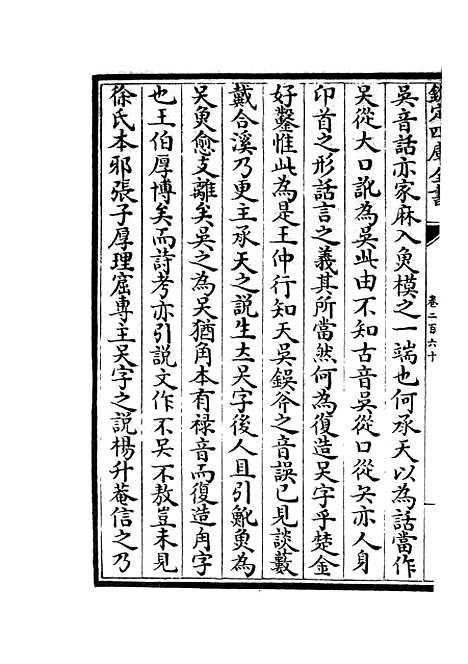 欽定四庫全書
卷二百六十
吳音話亦家麻入魚模之一端也何承天以為話當作
吴從大口訛為吳此由不知古音吳從口從夨亦人身
印首之形話言之義其所當然何為復造吴字乎楚金
好鑿惟此為是王仲行知天吳鋘斧之音誤已見談藪
戴合溪乃更主承天之說生𠫓吴字後人且引䱷魚為
吴魚愈支離矣吳之為吴猶角本有禄音而復造甪字
也王伯厚博矣而詩考亦引説文作不吴不敖豈未見
徐氏本邪張子厚理窟專主吴字之說楊升菴信之乃